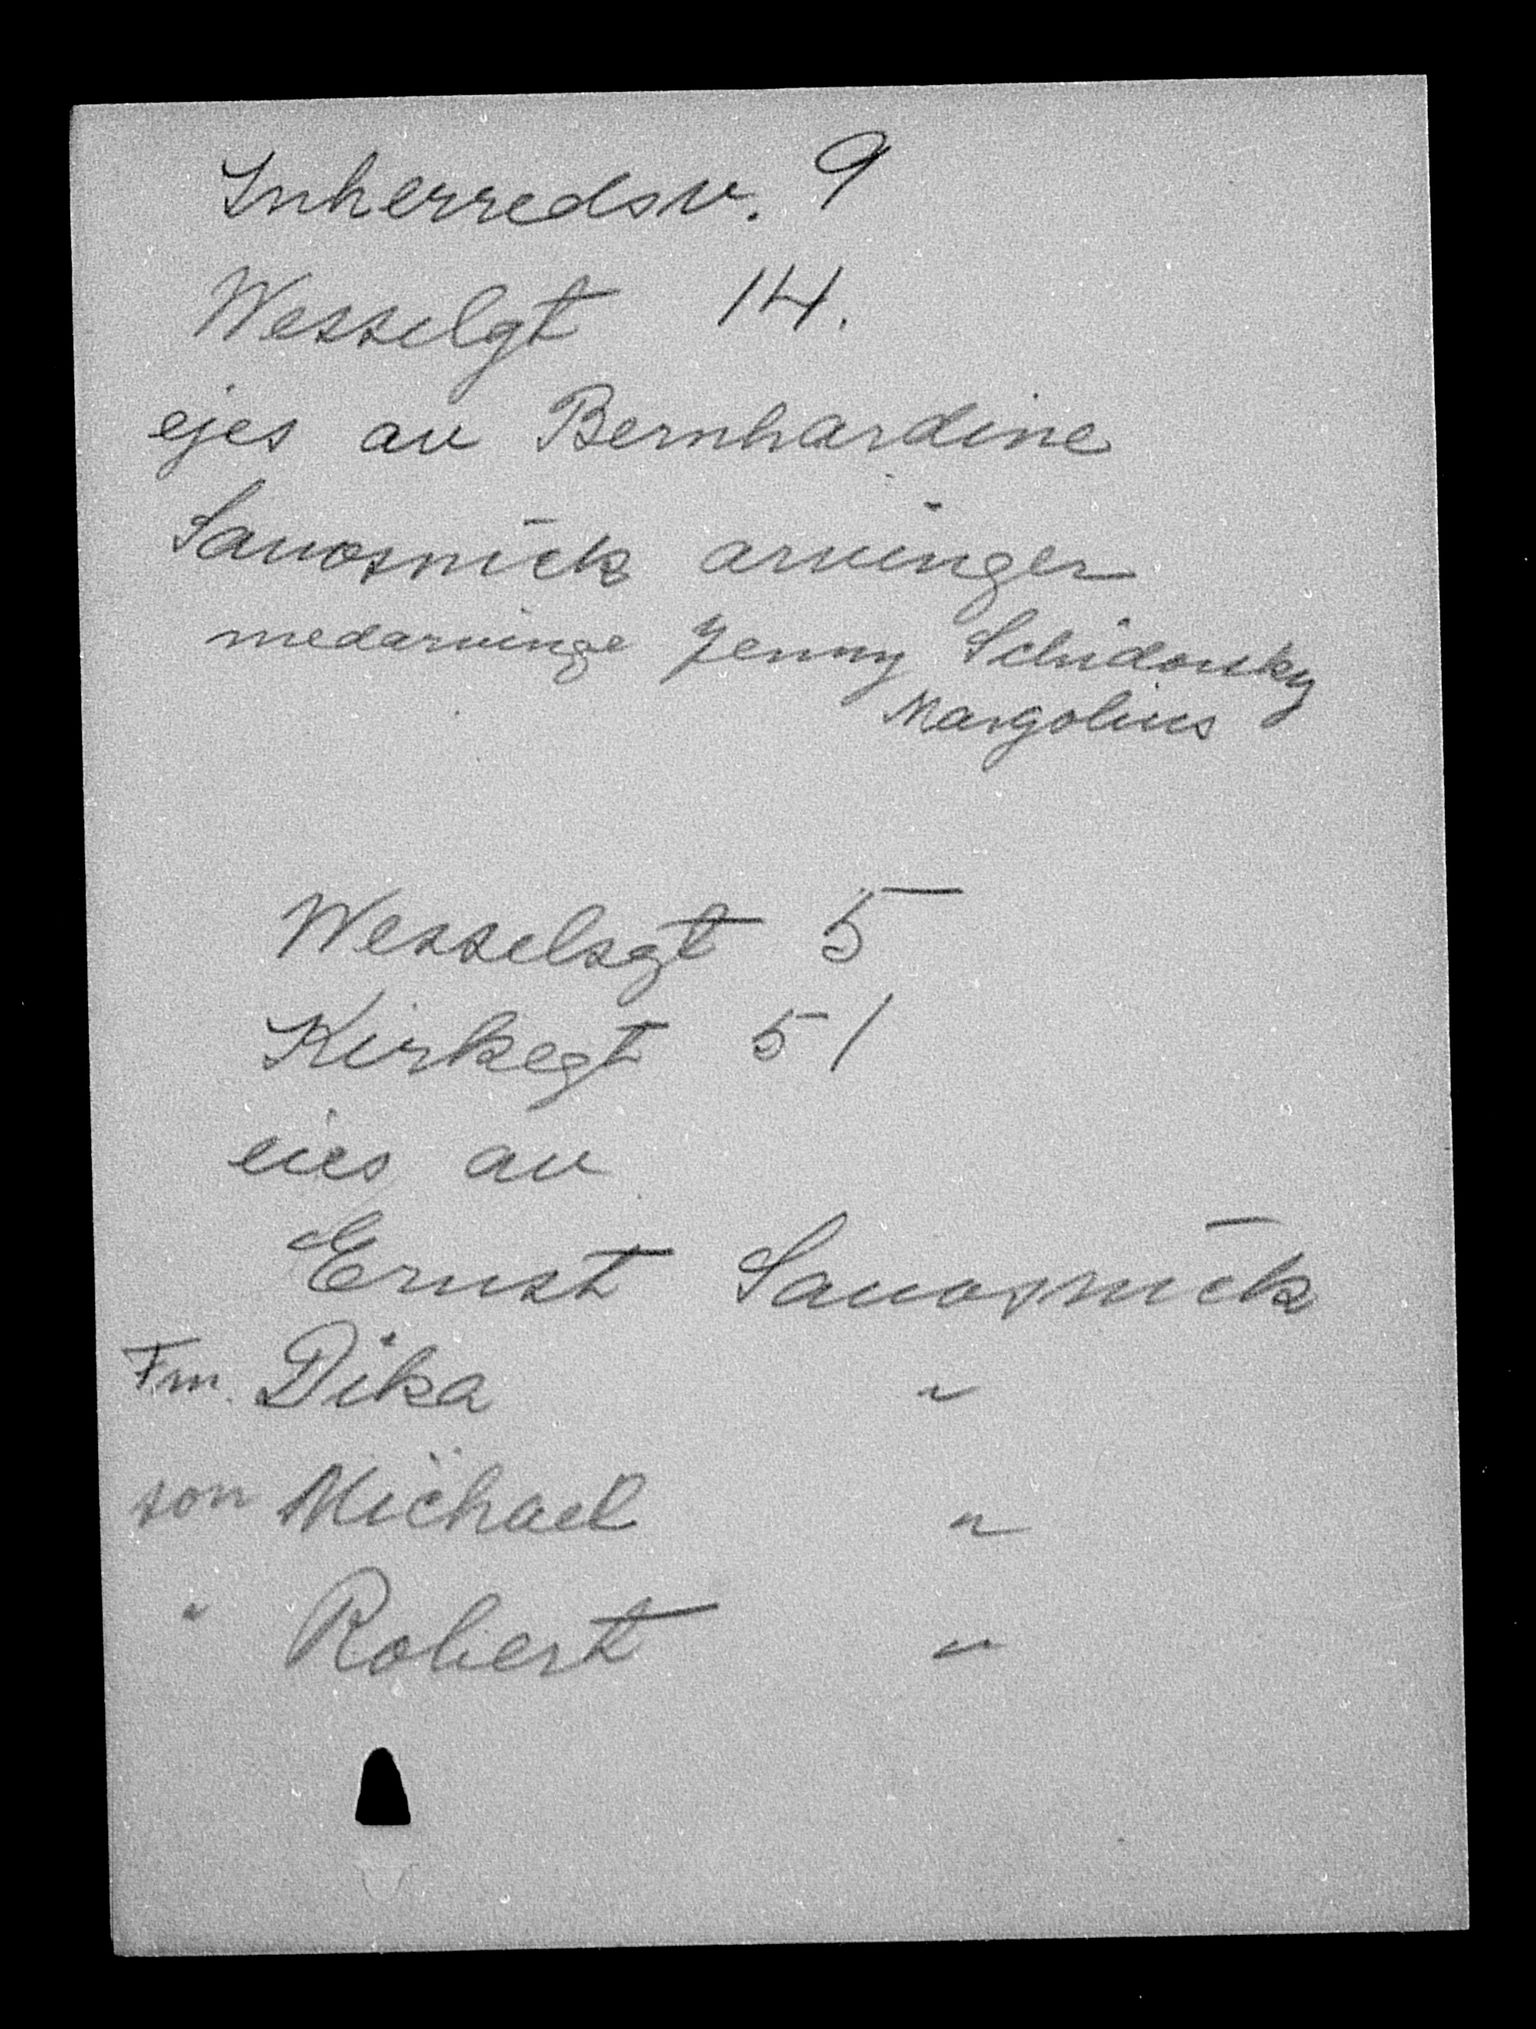 Inherredsv. 9
Wesselgt 14.
ejes av Bernhardine
Savosnick arvinger
medarvinge Jenny Schidorsky
Margolius
Wesselsgt 5
Kirkegt 51
eies av
Ernst Savosnick
Frn. Dika "
son Michael "
" Robert "